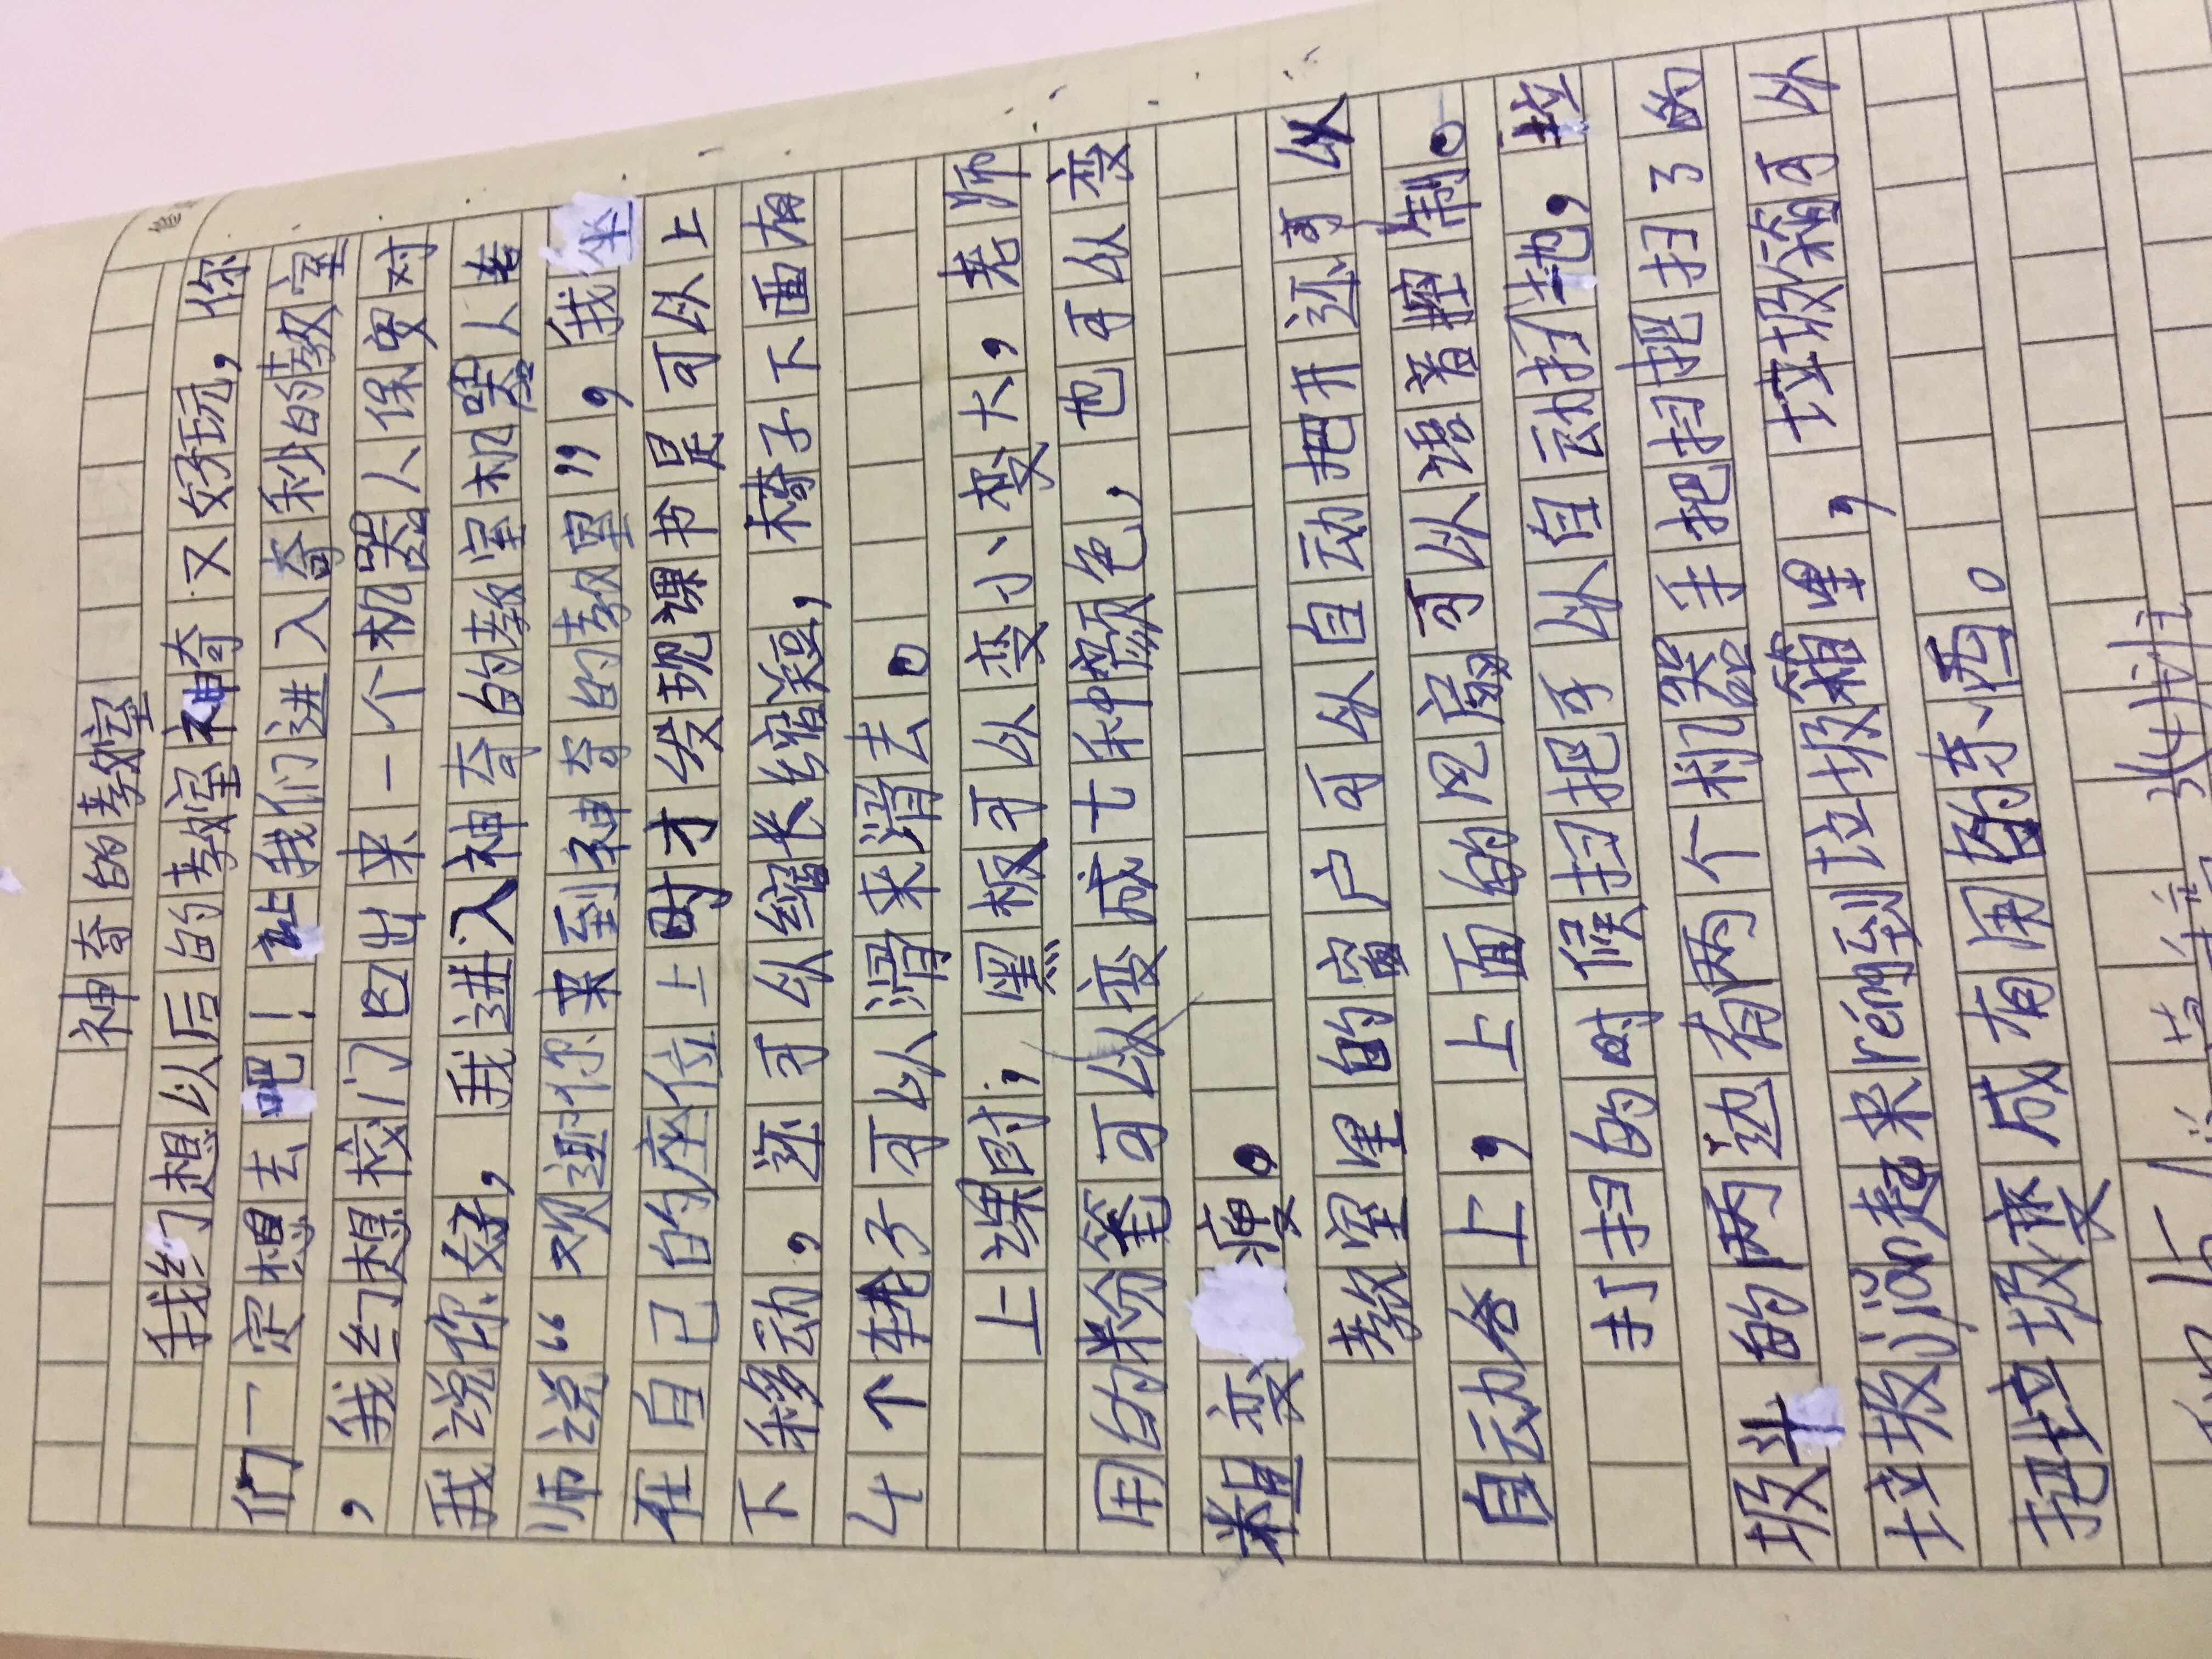 神奇的教室
我约想以后的教室神奇又好玩，你
们一定想去吧！让我们进入奇秒的教室
，我约想校门口出来一个机器人保安对
我说你好，我进入神奇的教室机器人老
师说“欢迎你来到神奇的教室”，我坐
在自己的座位上时才发现课书是可以上
下移动，还可以缩长缩短，椅子下面有
4个轮子可以滑来滑去。
上课时；黑板可以变小变大，老师
用的粉笔可以变成七种颜色，也可以变
粗变瘦。
教室里的窗户可以自动把开还可以
自动合上，上面的风扇可以语音控制。
打扫的时候扫把可以自动扫地，垃
圾斗的两边有两个机器手把扫把扫了的
垃圾jiǎn起来rēng到垃圾箱里，垃圾箱可以
把垃圾变成有用的东西。